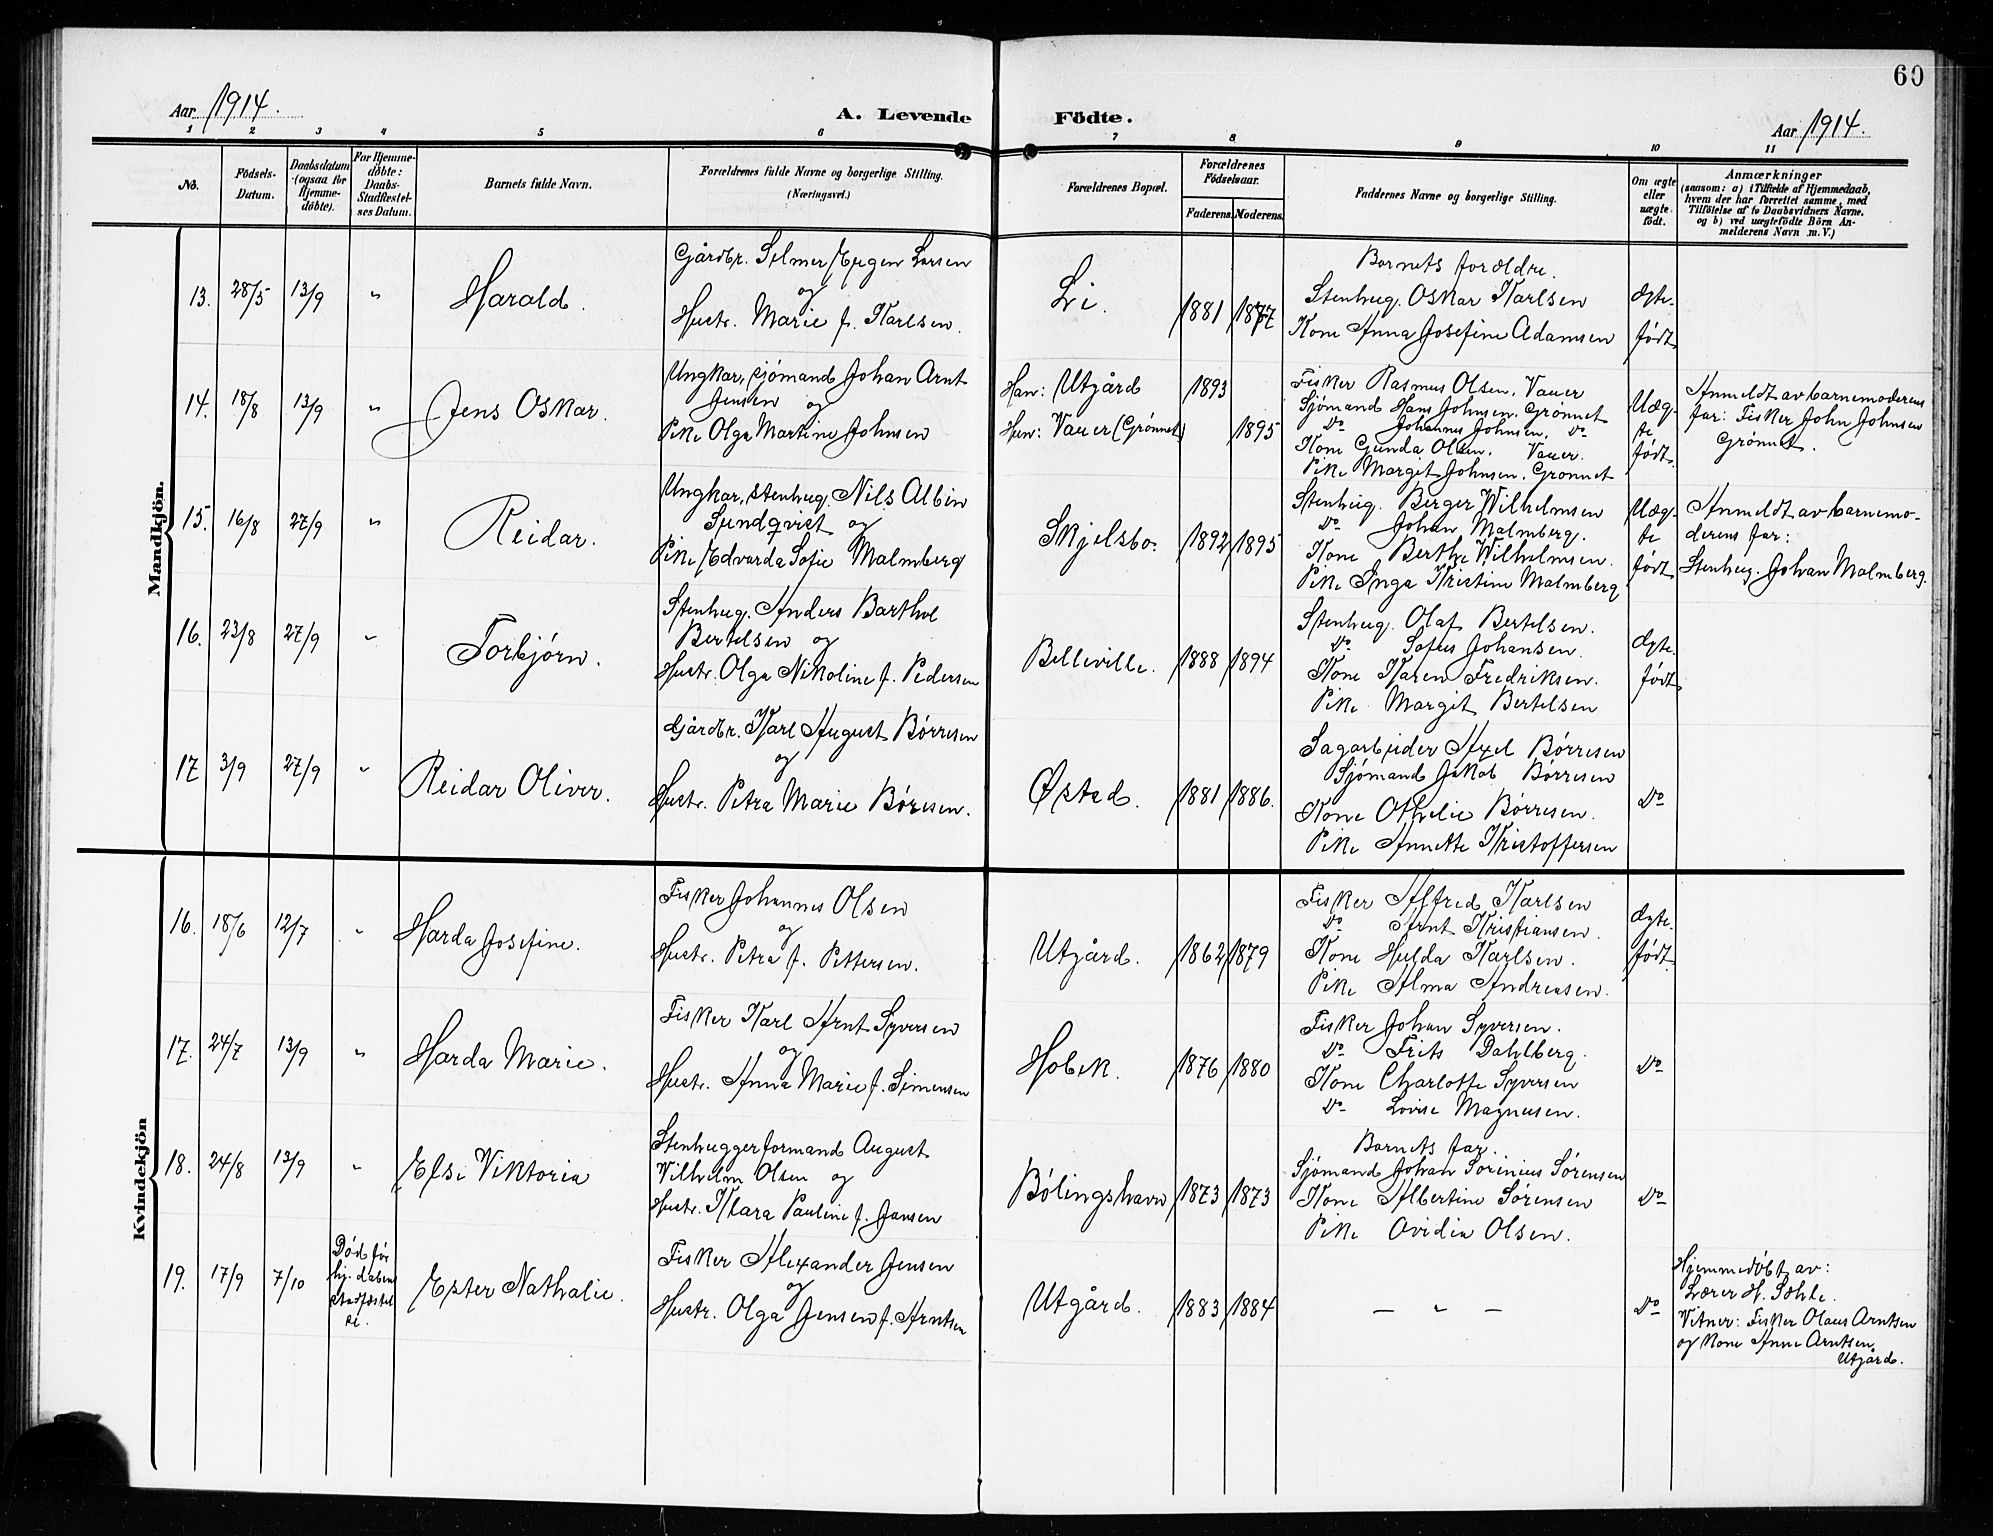 60
Aar 1914.
A. Levende Födte.
Aar 1914.
1 2 3 4 5 6 7 8 9 10 11
No.
Födsels-
Datum.
Daabsdatum
(ogsaa for
Hjemme-
döbte).
For Hjemme-
döbte:
Daabs-
Stadfæstel-
ses Datum.
Barnets fulde Navn.
Forældrenes fulde Navne og borgerlige Stilling.
(Næringsvei.)
Forældrenes Bopæl.
Forældrenes
Födselsaar.
Faderens. Moderens.
Faddernes Navne og borgerlige Stilling.
Om ægte
eller
uægte
födt.
Anmærkninger
(saasom: a) i Tilfælde af Hjemmedaab,
hvem der har forrettet samme, med
Tilföielse af to Daabsvidners Navne,
og b) ved uægtefödte Börn An-
melderens Navn m. V.)
Mandkjön.
13. 28/5 13/9 "
Harald.
Gårdbr. Selmer Eugen Larsen
og
Hustr. Marie f. Karlsen.
Li.
1881 1877
Barnets forældre.
Stenhug. Oskar Karlsen
Kone Anna Josefine Adamsen
Ægte-
født
14. 18/8 13/9 "
Jens Oskar.
Ungkar, sjømand Johan Arnt
Jensen og
Pike Olga Martine Johnsen
Han: Utgård 1893
Hun: Vauer (Grønnet) 1895
Fisker Rasmus Olsen. Vauer
Sjømand Hans Johnsen. Grønnet
Do Johannes Johnsen. Do
Kone Gunda Olsen. Vauer.
Pike Margit Johnsen. Grønnet
Uæg-
te
født
Anmeldt av barnemoderens
far: Fisker John Johnsen
Grønnet.
15. 16/8 27/9 "
Reidar.
Ungkar, stenhug. Nils Albin
Sundqvist og
Pike Edvarda Sofie Malmberg
Skjelsbo.
1892 1895
Stenhug. Berger Wilhelmsen
Do Johan Malmberg.
Kone Berthe Wilhelmsen.
Pike Inga Kristine Malmberg
Uæg-
te
født
Anmeldt av barnemo-
derens far:
Stenhug. Johan Malmberg.
16. 23/8 27/9 "
Torbjørn.
Stenhug. Anders Barthol
Bertelsen og
Hustr. Olga Nikoline f. Pedersen
Belleville.
1888 1894
Stenhug. Olaf Bertelsen.
Do Sofus Johansen.
Kone Karen Fredriksen.
Pike Margit Bertelsen
Ægte-
født
17 3/9 27/9 "
Reidar Oliver.
Gårdbr. Karl August Børresen
og
Hustr. Petra Marie Børesen.
Østad.
1881 1886.
Sagarbeider Axel Børresen
Sjømand Jakob Børresen
Kone Othelie Børresen.
Pike Annette Kristoffersen
Do
Kvindekjön
16. 18/6 12/7 "
Harda Josefine.
Fisker Johannes Olsen
og
Hustr. Petra f. Pettersen.
Utgård.
1862 1879
Fisker Alfred Karlsen
Do Arnt Kristiansen.
Kone Hulda Karlsen.
Pike Alma Andreasen.
Ægte-
født
17. 24/7 13/9 "
Harda Marie.
Fisker Karl Arnt Syversen
og
Hustr. Anna Marie f. Simensen
Hobæk.
1876 1880
Fisker Johan Syversen.
Do Frits Dahlberg.
Kone Charlotte Syversen
Do Lovise Magnusen.
Do
18. 24/8 13/9 "
Else Viktoria
Stenhuggerformand August
Wilhelm Olsen og
Hustr. Klara Pauline f. Jansen
Bølingshavn
1873 1873
Barnets far.
Sjømand Johan Sorinius Sørensen
Kone Albertine Sørensen
Pike Ovidia Olsen.
Do
19. 17/9 7/10
Død før
hj. dabens
stadfæstel
se.
Ester Nathalie.
Fisker Alexander Jensen
og
Hustr. Olga Jensen f. Arntsen
Utgård.
1883 1884
— " —
Do
Hjemmedøbt av:
Lærer H. Sohle.
Vitner: Fisker Olaus Arntsen
og Kone Anne Arntsen,
Utgård.